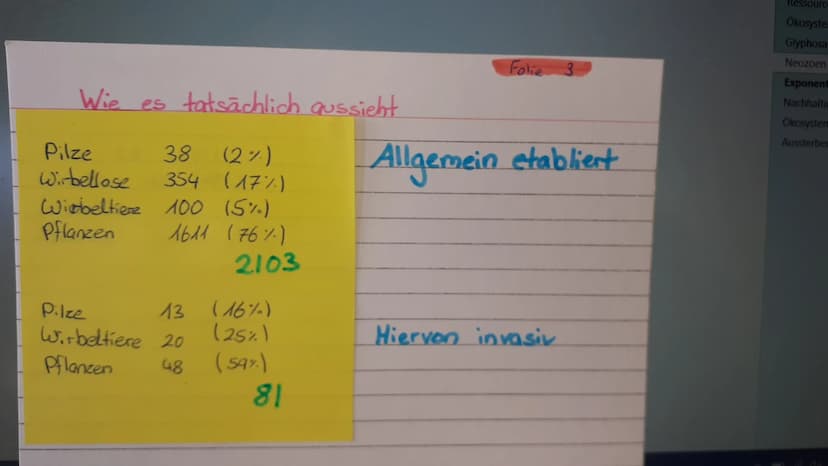 Ressourc
Ökosyste
Glyphosa
Neozoen
Exponent
Nachhalti
Ökosystem
Aussterbe
Folie 3
Wie es tatsächlich aussieht
Pilze 38 (2%)
Wirbellose 354 (17%)
Wirbeltiere 100 (5%)
Pflanzen 1611 (76%)
2103
Allgemein etabliert
Pilze 13 (16%)
Wirbeltiere 20 (25%)
Pflanzen 48 (59%)
81
Hiervon invasiv